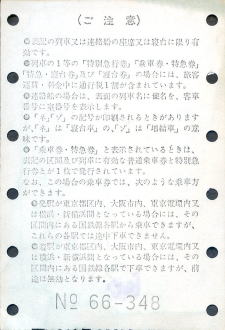 (ご 注 意)
◎表記の列車又は連絡船の座席又は寝台に限り有
効です。
◎列車の1等の「特別急行券」「乗車券・特急券」
「特急・寝台券」及び「寝台券」の場合には、旅客
運賃・料金中に通行税1割が含まれています。
◎連絡船の場合は、表面の列車名に便名を、客車
番号に室番号を表示します。
◎「ネ」「ゾ」の記号が印刷されるときがあります
が、「ネ」は「寝台車」の、「ゾ」は「増結車」の意
味です。
◎「乗車券・特急券」と表示されているときは、
表記の区間及び列車に有効な普通乗車券と特別急
行券とが1枚で発行されています。
なお、この場合の乗車券では、次のような乗車方
ができます。
◎発駅が東京都区内、大阪市内、東京電環内又
は横浜・新横浜間となっている場合には、その
区間内にある国鉄線各駅から乗車できますが、
これらの各駅では途中下車できません。
◎着駅が東京都区内、大阪市内、東京電環内又
は横浜・新横浜間となっている場合には、その
区間内にある国鉄線各駅で下車できますが、前
途は無効となります。
№ 66-348